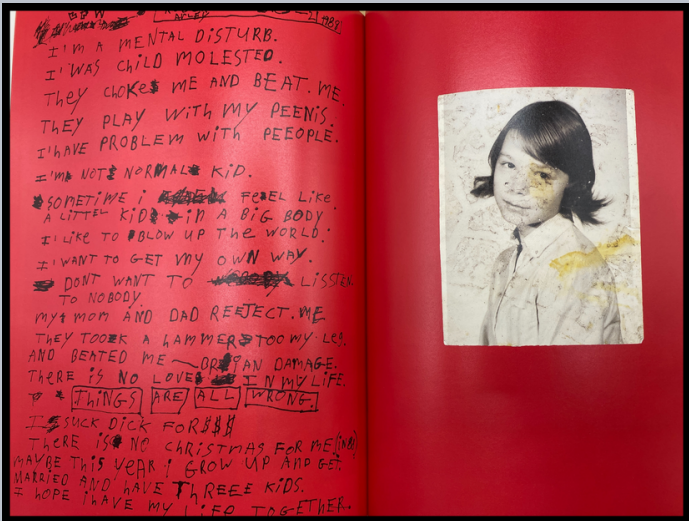 1988
I'M A MENTAL DiSTURB.
I'WAS CHiLD MOLESTED.
They ChOKEs ME AND BEAT.ME.
THEY PLAY WiTH MY PEENiS.
I'HAVE PROBLEM WiTh PEEOPLE.
I'M NOT NORMAL KiD.
SOMETiME i FEEL LiKE
A LiTTEL KiD iN A BiG BODY
I LiKE TO BLOW UP ThE WORLD.
I'WANT TO GET MY OWN WAY.
DONT WANT TO LiSSTEN.
TO NOBODY.
MY MOM AND DAD REEJECT.ME
THEY TOOK A hAMMER TOO MY LEG.
AND BEATED ME BRiAN DAMAGE.
ThERE iS NO LOVE IN MY LiFE.
THiNGS ARE ALL WRONG.
I SUCK DiCK FOR$$$
ThERE iS NO ChRiSTMAS FOR ME
MAYBE THiS YEAR i GROW UP AND GET
MARRiED AND hAVE ThREEE KiDS.
I hOPE ihAVE MY LiFE TOGETHER.